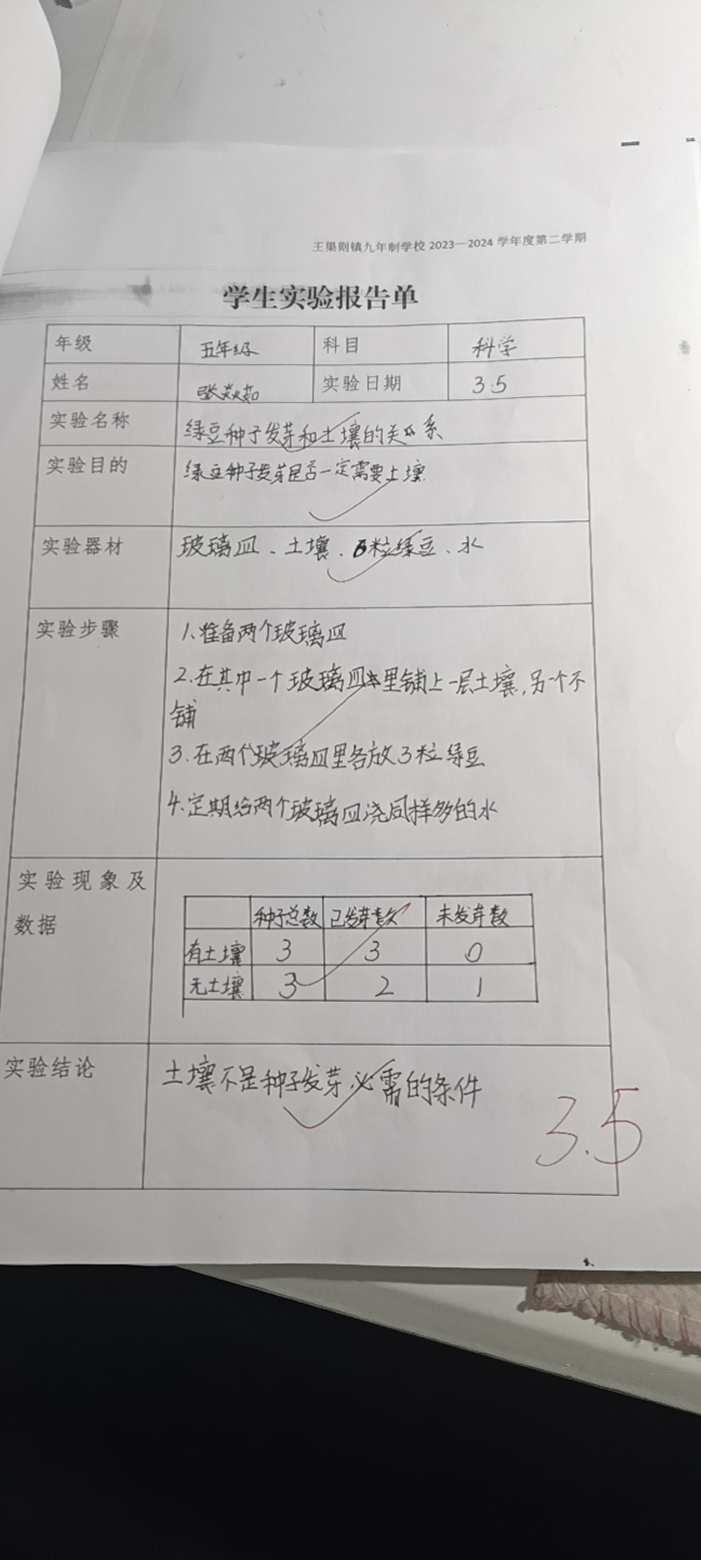 王渠则镇九年制学校 2023—2024 学年度第二学期
学生实验报告单
年级 五年级 科目 科学
姓名 张焱茹 实验日期 3.5
实验名称 绿豆种子发芽和土壤的关系
实验目的 绿豆种子发芽是否一定需要土壤
实验器材 玻璃皿、土壤、6粒绿豆、水
实验步骤 1.准备两个玻璃皿
2.在其中一个玻璃皿里铺上一层土壤,另一个不
铺
3.在两个玻璃皿里各放3粒绿豆
4.定期给两个玻璃皿浇同样多的水
实验现象及
数据
种子总数 已发芽数 未发芽数
有土壤 3 3 0
无土壤 3 2 1
实验结论 土壤不是种子发芽必需的条件
3.5